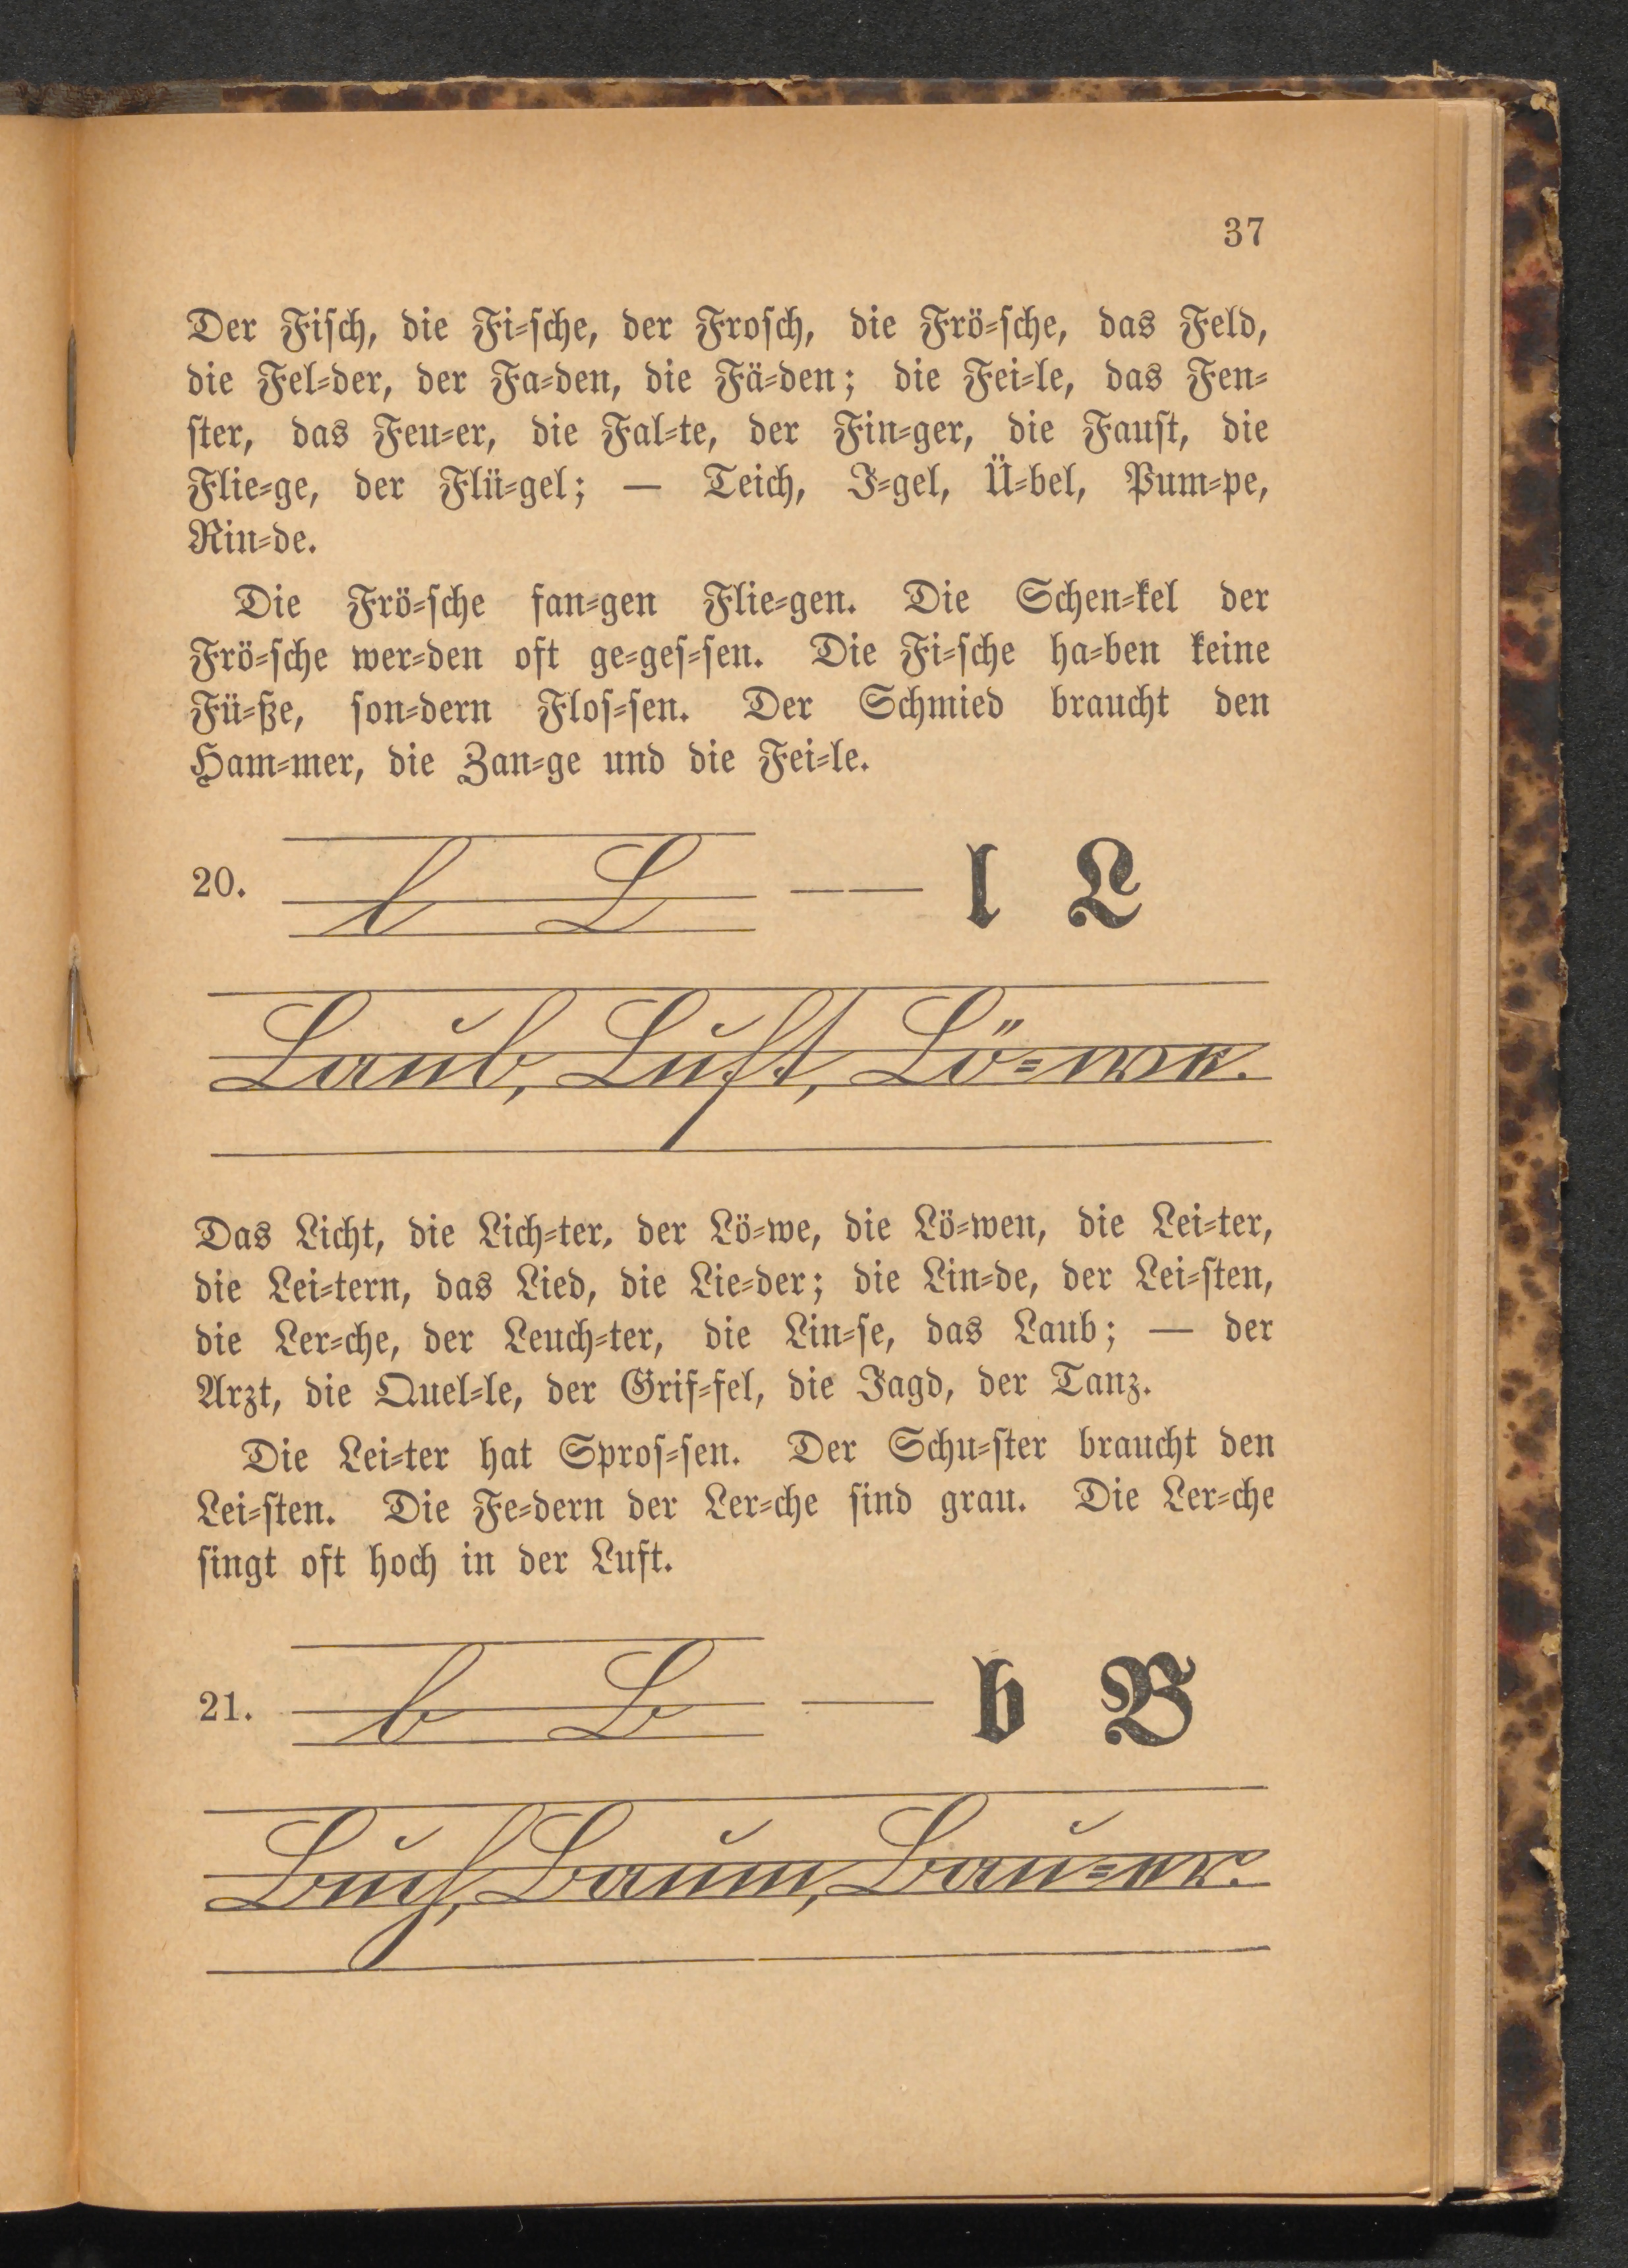 37
Der Fisch, die Fi=sche, der Frosch, die Frö=sche, das Feld,
die Fel=der, der Fa=den, die Fä=den; die Fei=le, das Fen=
ster, das Feu=er, die Fal=te, der Fin=ger, die Faust, die
Flie=ge, der Flü=gel; — Teich, I=gel, Ü=bel, Pum=pe,
Rin=de.
Die Frö=sche fan=gen Flie=gen. Die Schen=kel der
Frö=sche wer=den oft ge=ges=sen. Die Fi=sche ha=ben keine
Fü=ße, son=dern Flos=sen. Der Schmied braucht den
Ham=mer, die Zan=ge und die Fei=le.
20. l L — — l L
Laub, Luft, Lö=we.
Das Licht, die Lich=ter, der Lö=we, die Lö=wen, die Lei=ter,
die Lei=tern, das Lied, die Lie=der; die Lin=de, der Lei=sten,
die Ler=che, der Leuch=ter, die Lin=se, das Laub; — der
Arzt, die Quel=le, der Grif=fel, die Jagd, der Tanz.
Die Lei=ter hat Spros=sen. Der Schu=ster braucht den
Lei=sten. Die Fe=dern der Ler=che sind grau. Die Ler=che
singt oft hoch in der Luft.
21. b B — b B
Buch, Baum, Bau=er.